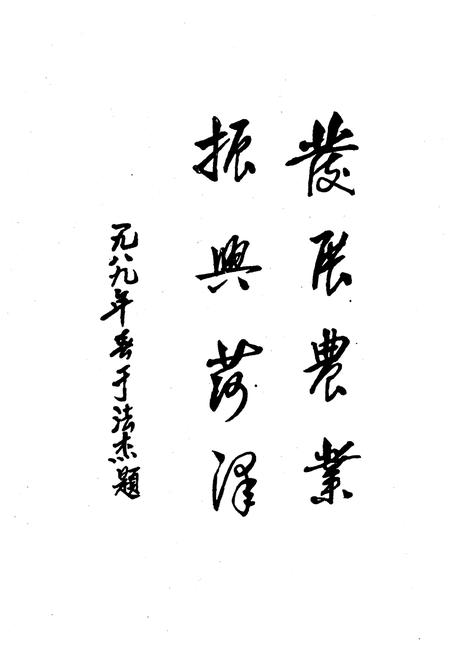 發展農業
振興菏澤
一九八九年春于法杰題